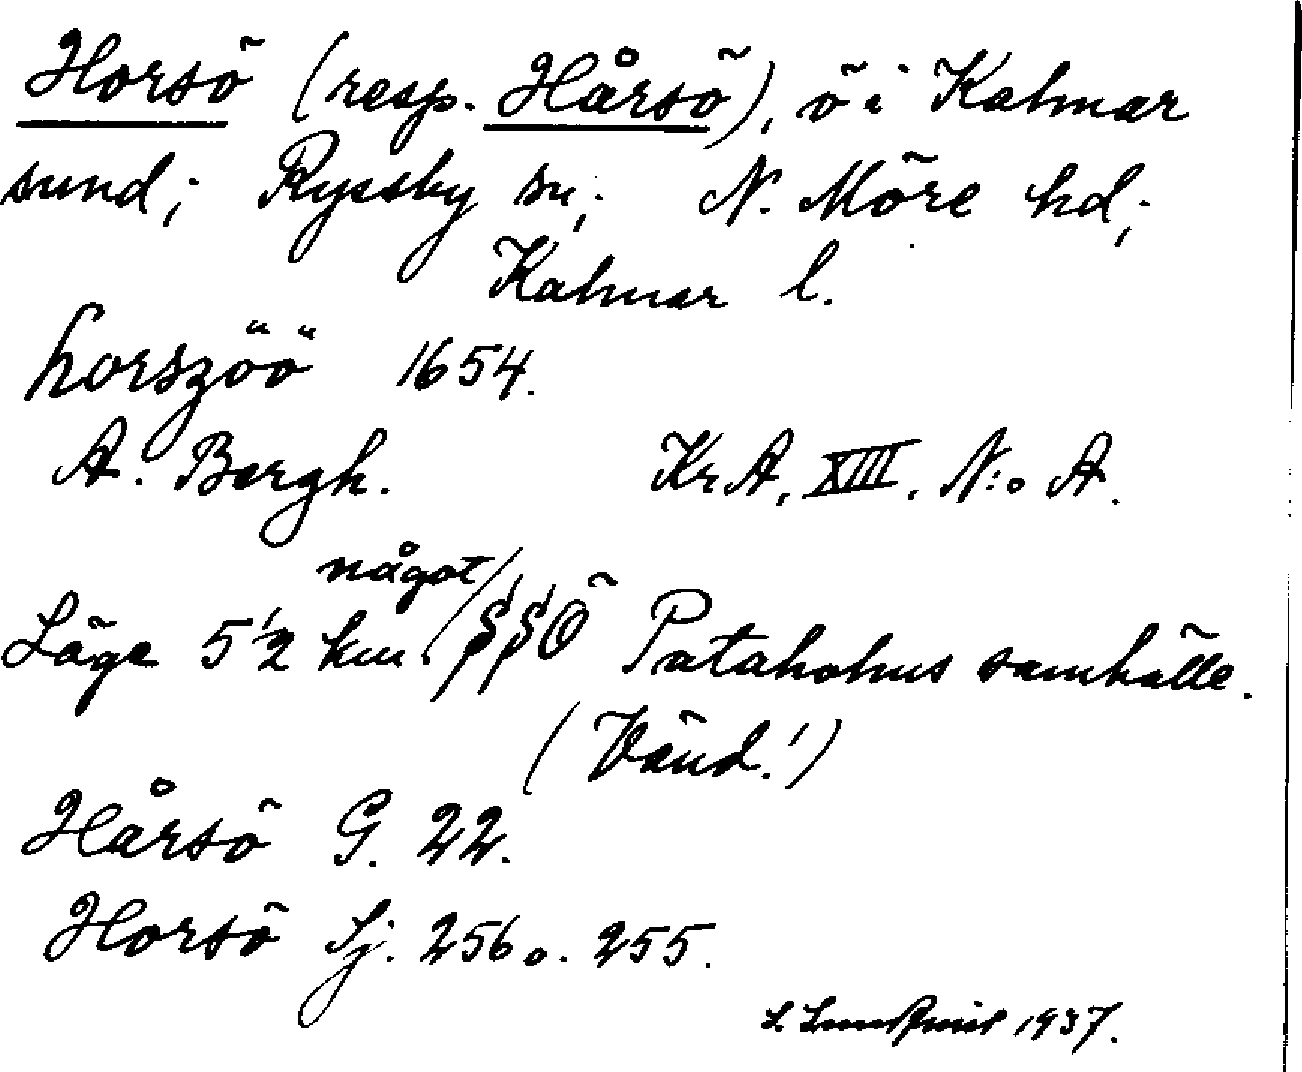 Horsö (resp. Hårsö), ö i Kalmar
sund; Ryssby sn; N. Möre hd;
Kalmar l.
horszöö 1654.
A. Bergh. KrA, XIII, N:o A.
något
Läge 5 1/2 km. SSÖ Pataholms samhälle.
(Vänd!)
Hårsö G. 22.
Horsö Sj. 256 o. 255.
1937.